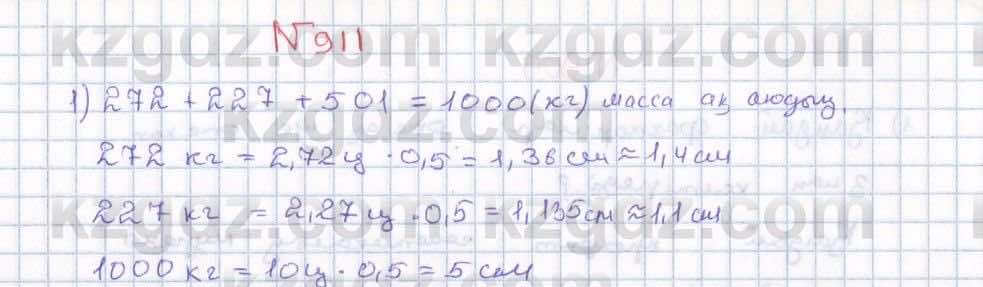 №911
1) 272 + 227 + 501 = 1000 (кг) масса ақ аюдың.
272 кг = 2,72ц · 0,5 = 1,36 см ≈ 1,4 см
227 кг = 2,27ц · 0,5 = 1,135 см ≈ 1,1 см
1000 кг = 10ц · 0,5 = 5 см
kzgdz.com kzgdz.com
kzgdz.com
kzgdz.com kzgdz.com